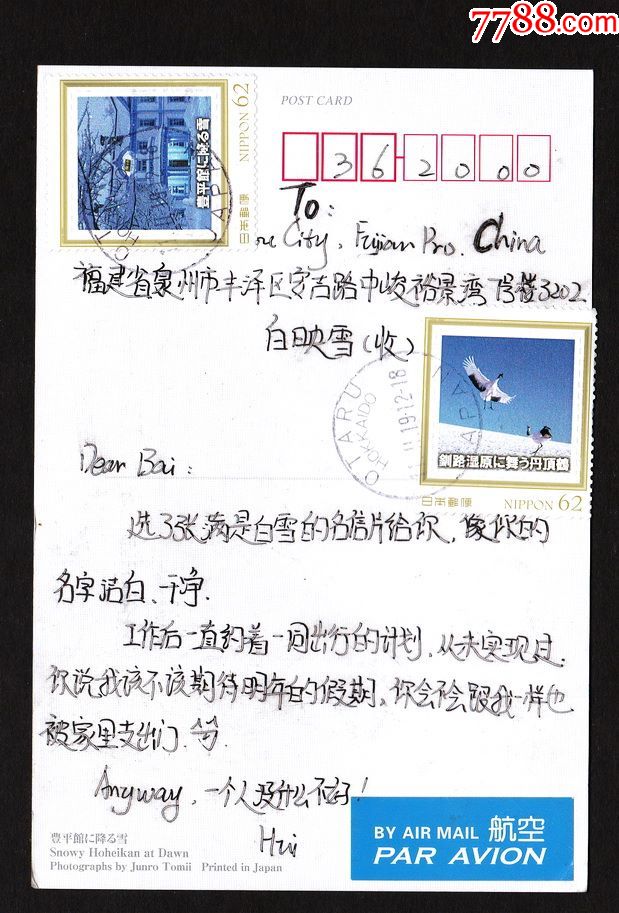 7788.com
POST CARD
NIPPON 62
豊平館に降る雪
日本郵便
362000
To:
City, Fujian Pro. China
福建省泉州市丰泽区安吉路中峻裕景湾 号楼3202
白映雪(收)
OTARU
HOKKAIDO
JAPAN
釧路湿原に舞う丹頂鶴
日本郵便 NIPPON 62
Dear Bai:
选了张满是白雪的名信片给你,像你的
名字洁白、干净.
工作后一直约着一同出行的计划,从未实现过.
你说我该不该期待明年的假期,你会不会跟我一样也
被家里支出门.
Anyway,一个人没什么不好!
Hui
豊平館に降る雪
Snowy Hoheikan at Dawn
Photographs by Junro Tomii Printed in Japan
BY AIR MAIL 航空
PAR AVION